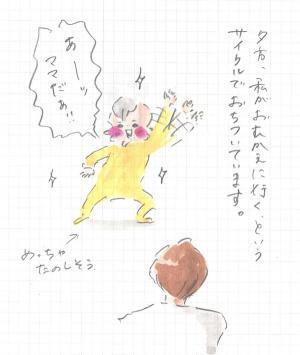 夕方、私がおむかえに行く、という
サイクルでおちついています。
あーッ
ママだぁ!!
めっちゃ
たのしそう